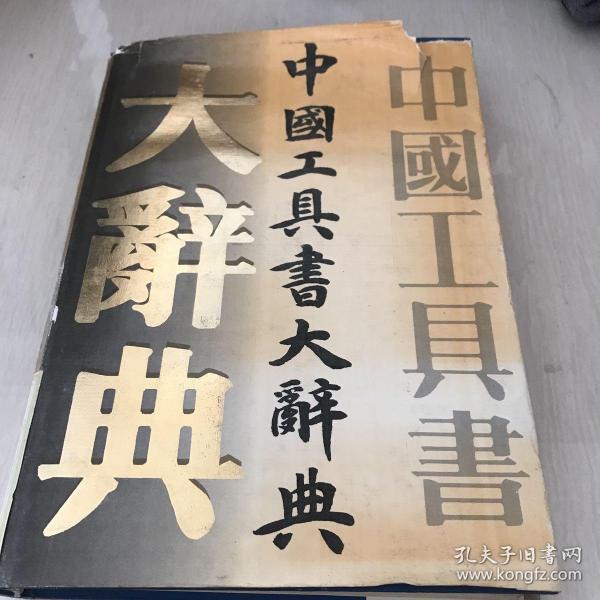 中國工具書
中國工具書大辭典
大辭典
孔夫子旧书网
www.kongfz.com